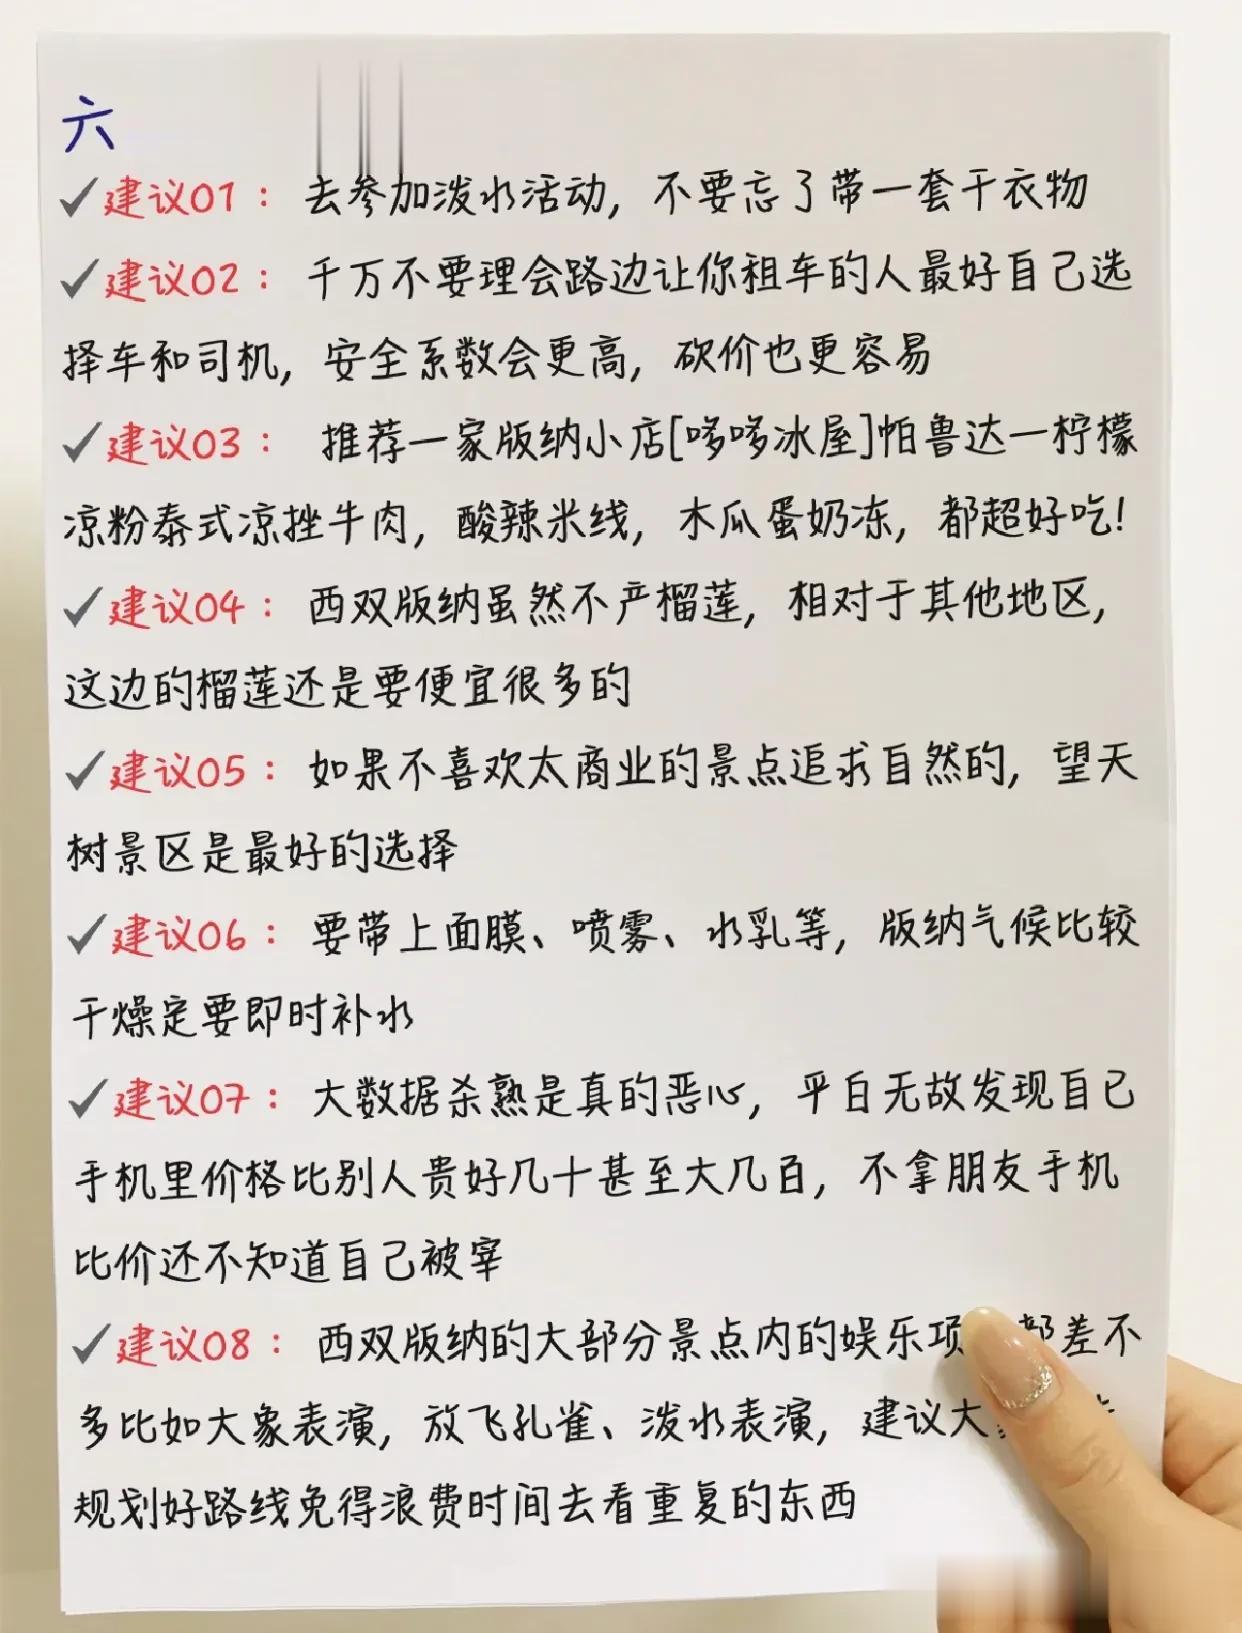 六
✓建议01： 去参加泼水活动，不要忘了带一套干衣物
✓建议02： 千万不要理会路边让你租车的人最好自己选
择车和司机，安全系数会更高，砍价也更容易
✓建议03： 推荐一家版纳小店[哆哆冰屋]帕鲁达一柠檬
凉粉泰式凉挫牛肉，酸辣米线，木瓜蛋奶冻，都超好吃！
✓建议04： 西双版纳虽然不产榴莲，相对于其他地区，
这边的榴莲还是要便宜很多的
✓建议05： 如果不喜欢太商业的景点追求自然的，望天
树景区是最好的选择
✓建议06： 要带上面膜、喷雾、水乳等，版纳气候比较
干燥定要即时补水
✓建议07： 大数据杀熟是真的恶心，平白无故发现自己
手机里价格比别人贵好几十甚至大几百，不拿朋友手机
比价还不知道自己被宰
✓建议08： 西双版纳的大部分景点内的娱乐项 都差不
多比如大象表演，放飞孔雀、泼水表演，建议大
规划好路线免得浪费时间去看重复的东西